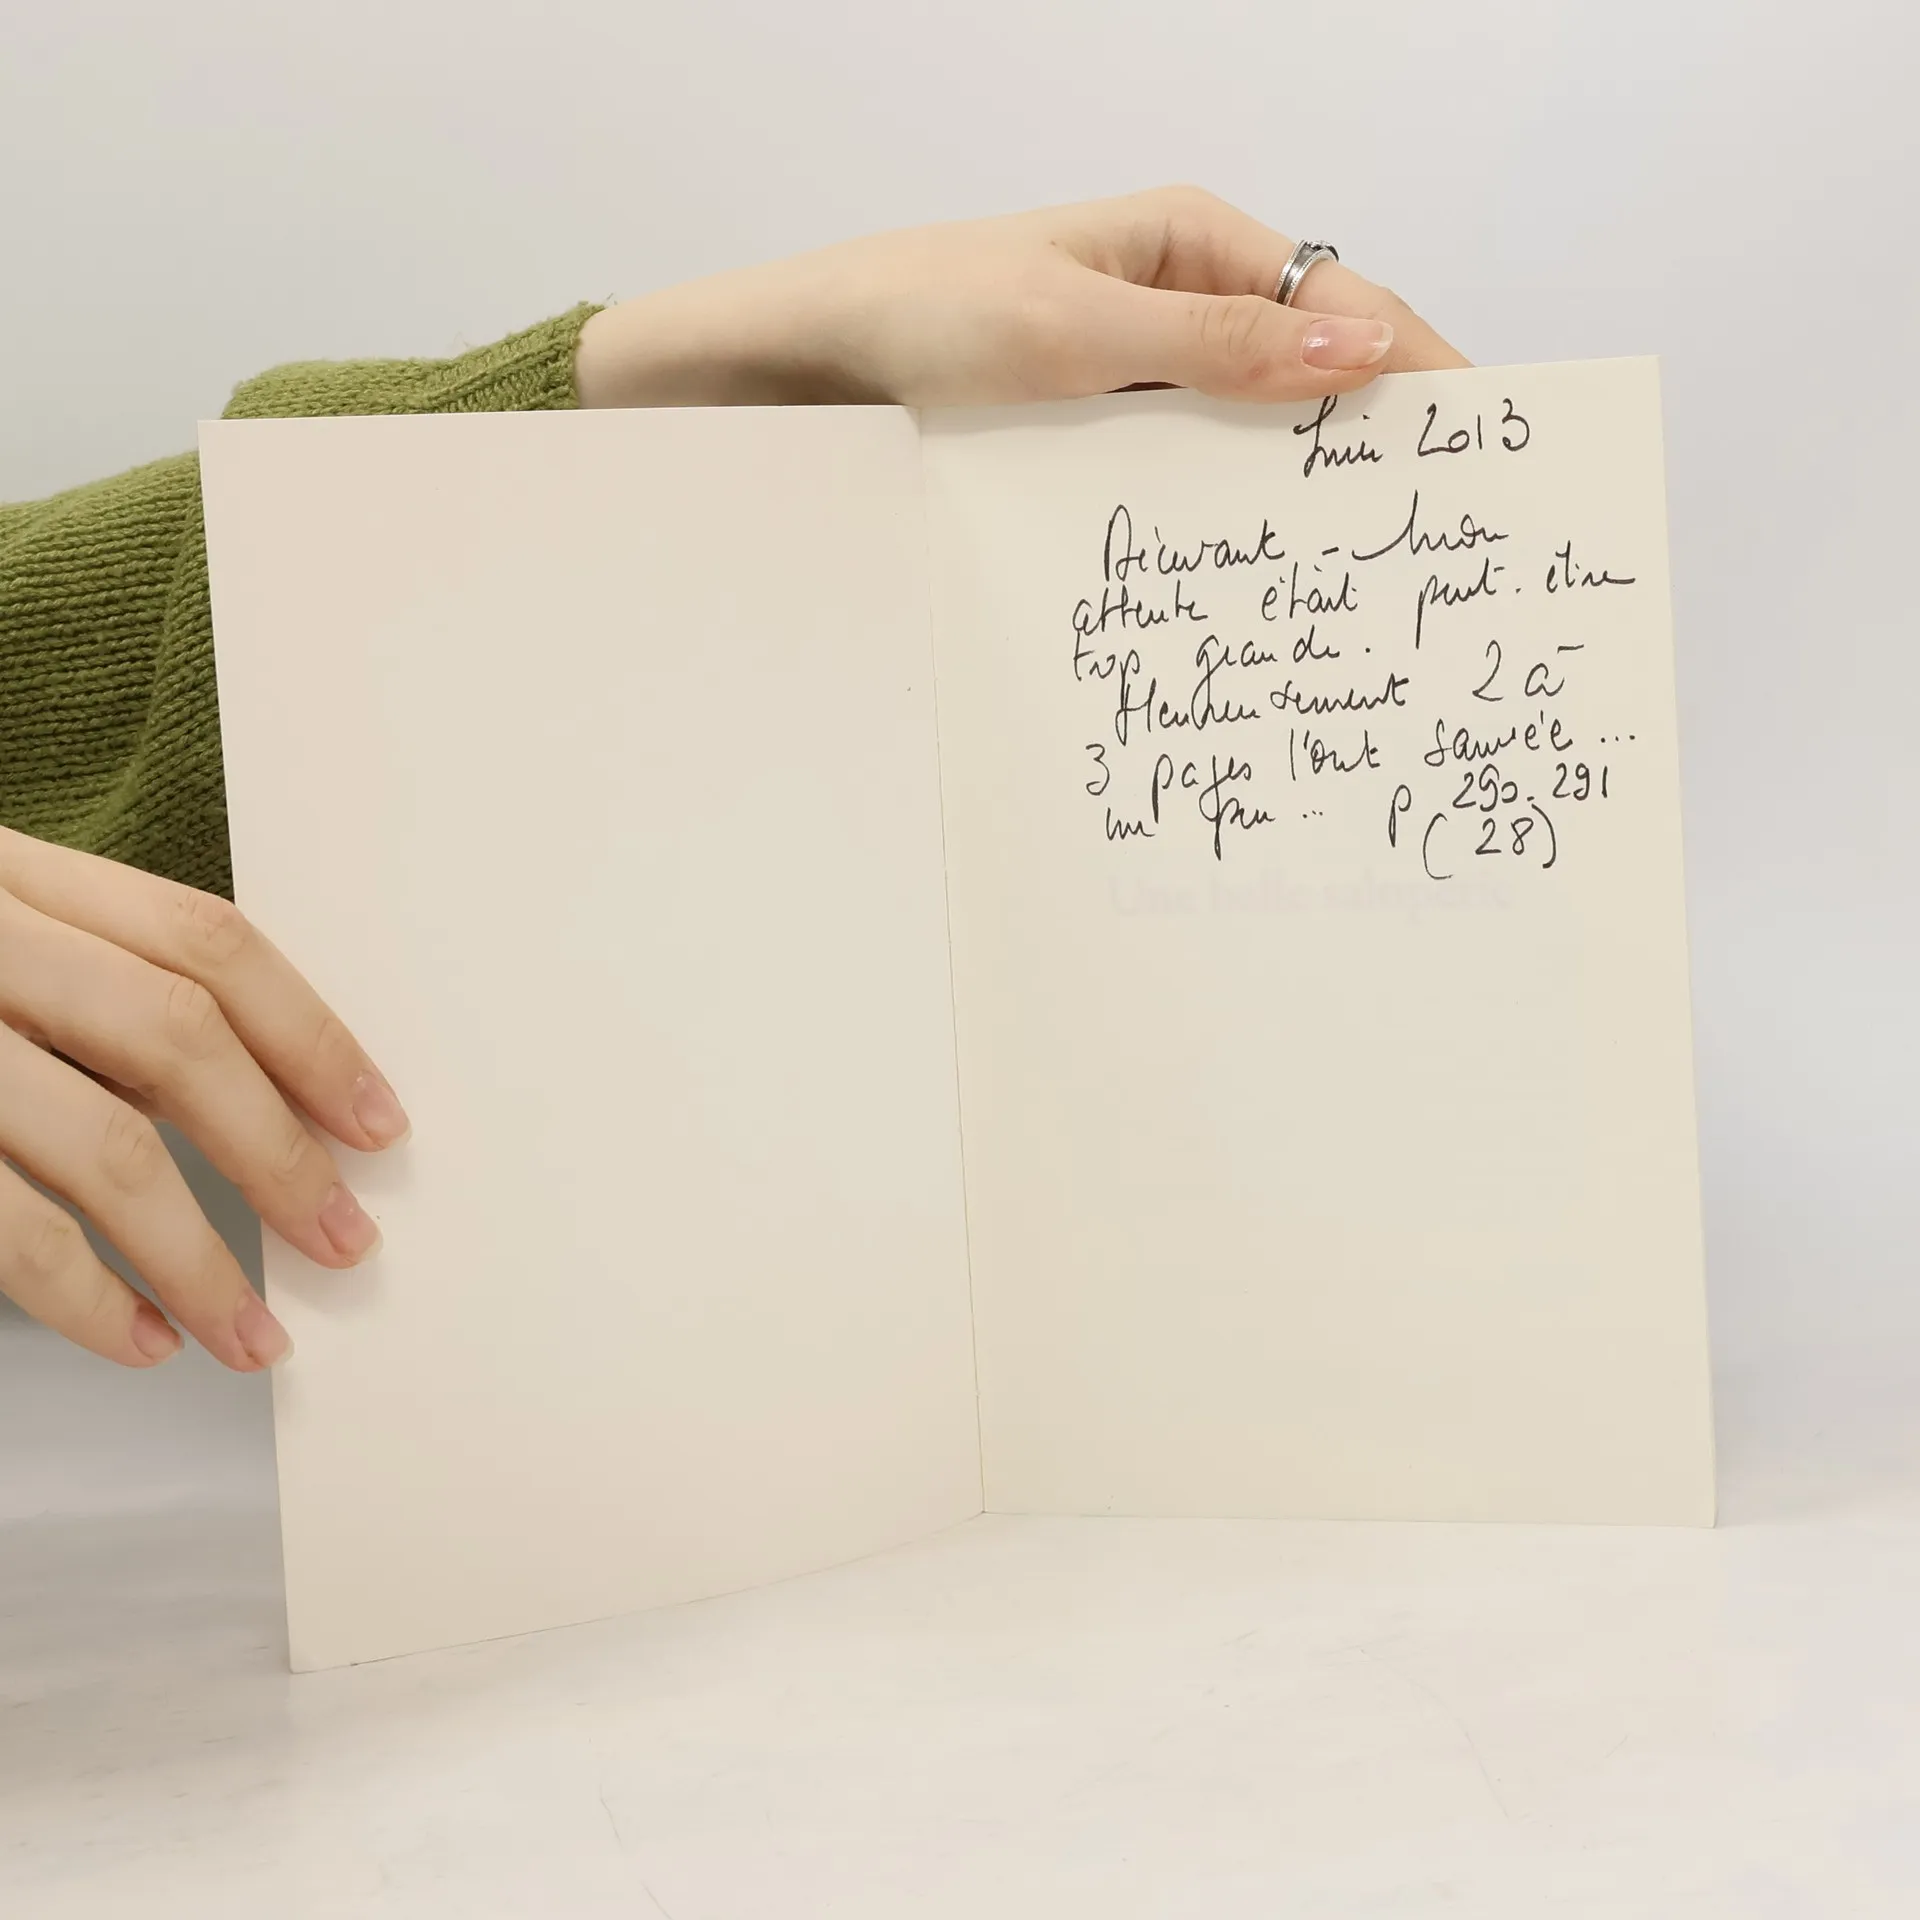 Juin 2013
Décevant - Mon
attente était peut-être
trop grande.
Heureusement 2 à
3 pages l'ont sauvée ...
un peu ... p 290. 291
(28)
Une belle saloperie